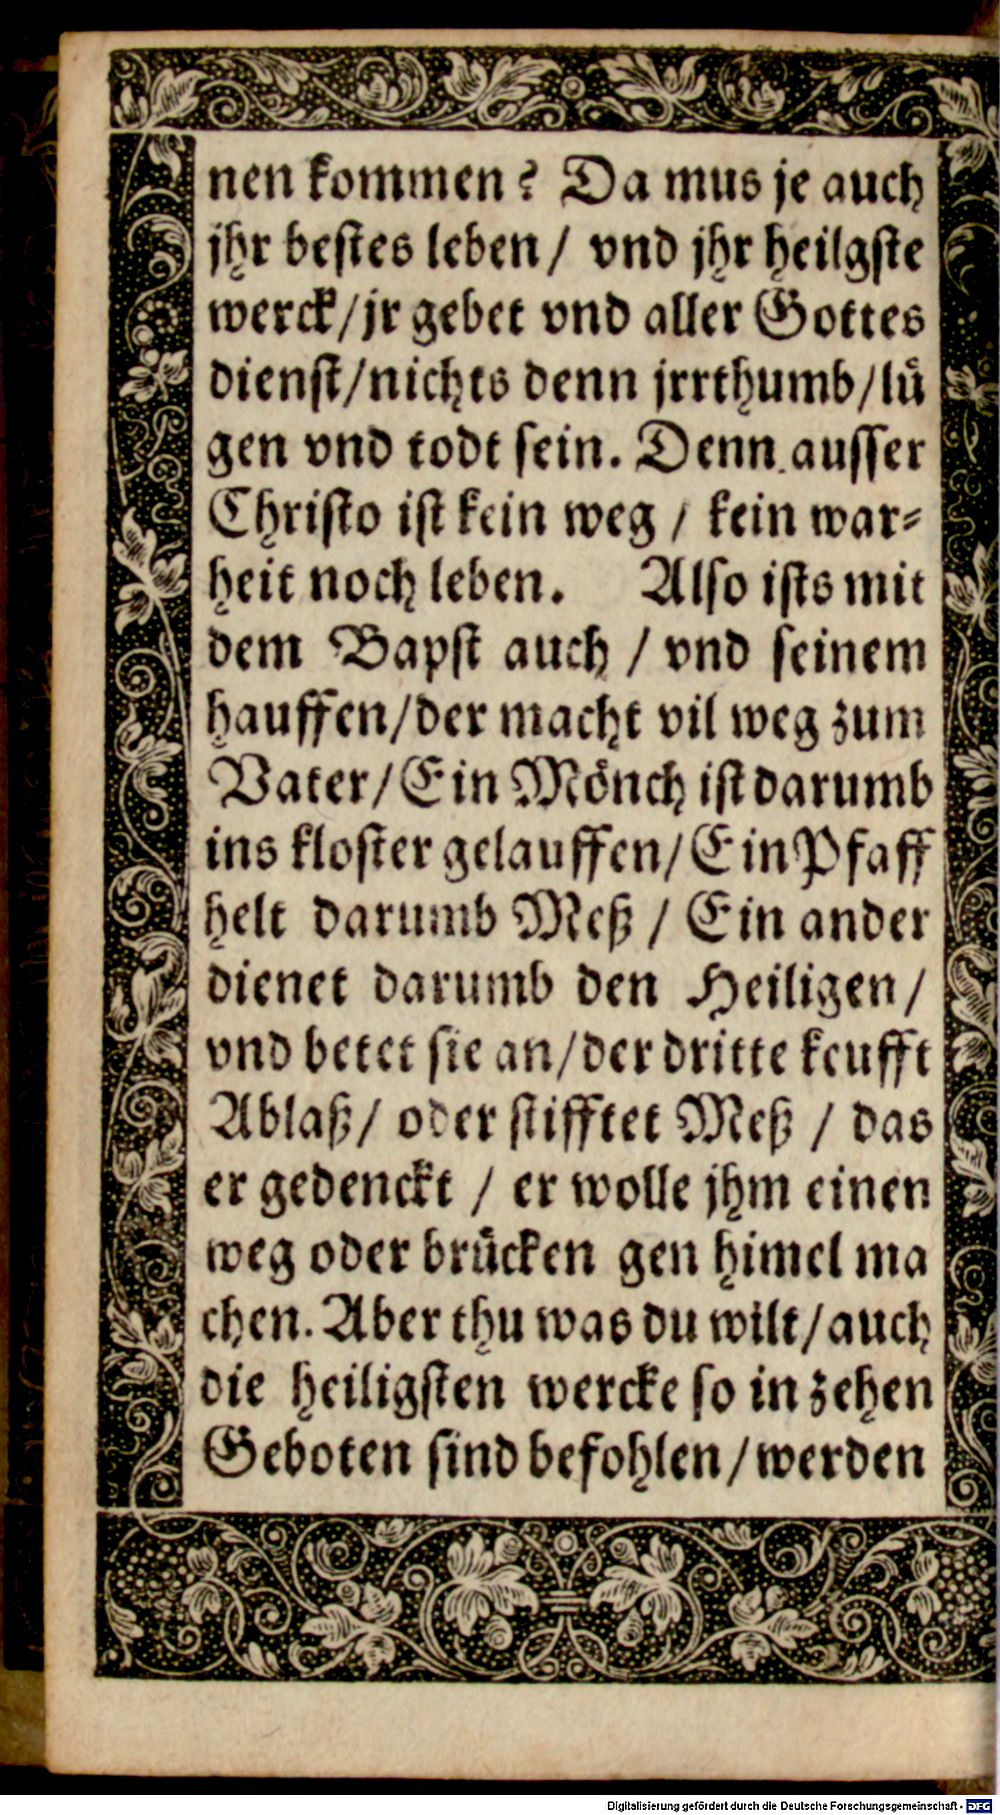 nen kommen? Da mus je auch
jhr bestes leben/ vnd jhr heilgste
werck/jr gebet vnd aller Gottes
dienst/nichts denn jrrthumb/luͤ
gen vnd todt sein. Denn ausser
Christo ist kein weg / kein war⸗
heit noch leben. Also ists mit
dem Bapst auch / vnd seinem
hauffen/der macht vil weg zum
Vater/Ein Moͤnch ist darumb
ins kloster gelauffen/Ein Pfaff
helt darumb Meß / Ein ander
dienet darumb den Heiligen/
vnd betet sie an/der dritte keufft
Ablaß/ oder stifftet Meß / das
er gedenckt / er wolle jhm einen
weg oder bruͤcken gen himel ma
chen. Aber thu was du wilt/auch
die heiligsten wercke so in zehen
Geboten sind befohlen/werden
Digitalisierung gefördert durch die Deutsche Forschungsgemeinschaft - DFG